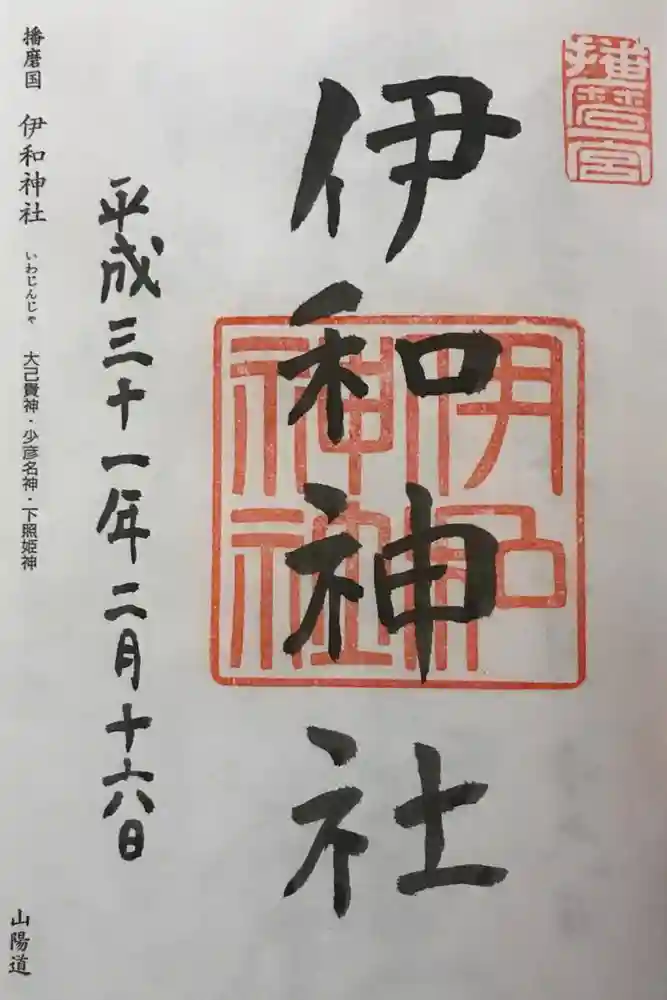 播磨宮
伊和神社
伊和
神社
平成三十一年二月十六日
播磨国 伊和神社 いわじんじゃ 大己貴神・少彦名神・下照姫神
山陽道